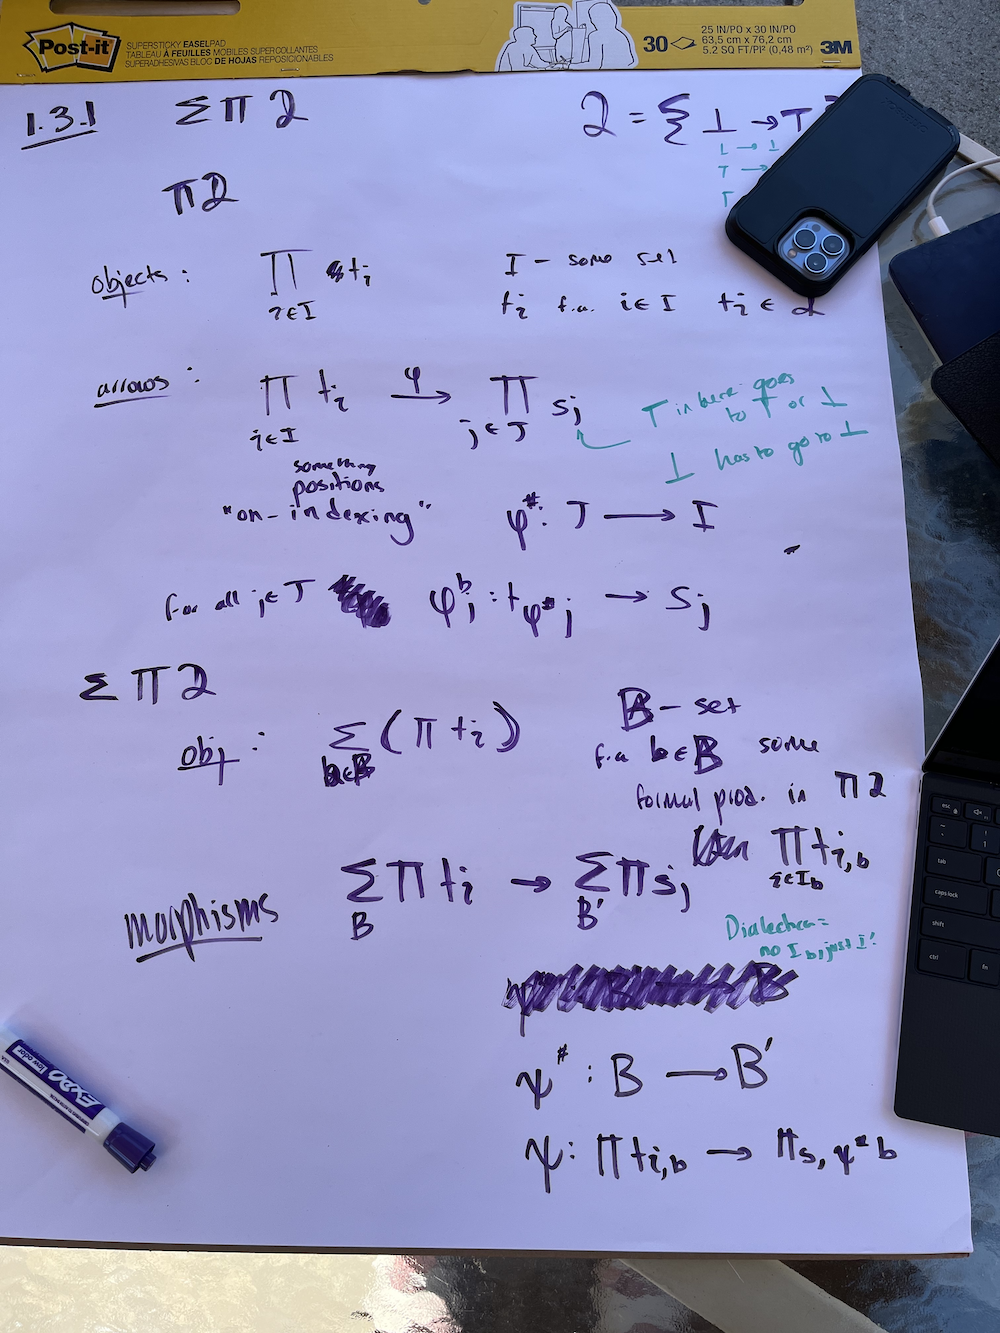 Post-it
SUPERSTICKY EASELPAD
TABLEAU À FEUILLES MOBILES SUPERCOLLANTES
SUPERADHESIVAS BLOC DE HOJAS REPOSICIONABLES
30
25 IN/PO x 30 IN/PO
63,5 cm x 76,2 cm
5.2 SQ FT/PI² (0,48 m²)
3M
1.3.1 ΣΠ2 2 = { ⊥ → T
⊥ → ⊥
T →
T
Π2
objects: ∏ i∈I ti I - some set
ti f.a. i∈I ti ∈ 2
arrows: ∏ i∈I ti —φ→ ∏ j∈J sj
T in here goes
to T or ⊥
⊥ has to go to ⊥
something
positions
"on-indexing" φ#: J → I
for all j∈J φ♭j : tφ#j → sj
ΣΠ2
obj: Σ b∈B (∏ ti) B - set
f.a. b∈B some
formal prod. in Π2
∏ i∈Ib ti,b
morphisms Σ B ∏ ti → Σ B' ∏ sj
Dialectica =
no Ib, just I!
ψ#: B → B'
ψ: ∏ ti,b → ∏ s, ψ#b
EXPO
low odor
esc
tab
caps lock
shift
ctrl
fn